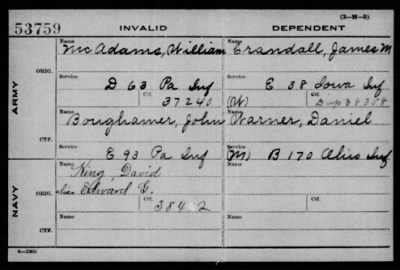 (3-H-5)
53759 INVALID DEPENDENT
Name Name
McAdams, William Crandall, James M
ORIG.
Service Service
D 63 Pa Inf E 38 Iowa Inf
Ctf. Ctf.
37240 (W)
ARMY
Name Name
Boughamer, John Warner, Daniel
CTF.
Service
E 93 Pa Inf (M) B 170 Ohio Inf
Name Name
King, David
Edward G.
NAVY ORIG.
Ctf. Ctf.
Name Name
CTF.